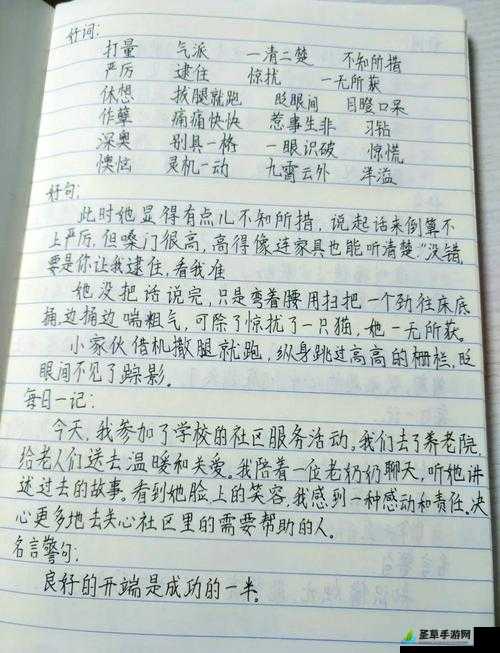 好词:
打量 气派 一清二楚 不知所措
严厉 逮住 惊扰 一无所获
休想 拔腿就跑 眨眼间 目瞪口呆
作孽 痛痛快快 惹事生非 习钻
深奥 别具一格 一眼识破 惊慌
懊恼 灵机一动 九霄云外 洋溢
好句:
此时她显得有点儿不知所措，说起话来倒算不
上严厉，但嗓门很高，高得像连家具也能听清楚:"没错，
要是你让我逮住，看我准
她没把话说完，只是弯着腰用扫把一个劲往床底
捅，边捅边喘粗气，可除了惊扰了一只猫，她一无所获。
小家伙借机撒腿就跑，纵身跳过高高的栅栏，眨
眼间不见了踪影。
每日一记:
今天，我参加了学校的社区服务活动。我们去了养老院，
给老人们送去温暖和关爱。我陪着一位老奶奶聊天，听她讲
述过去的故事。看到她脸上的笑容，我感到一种感动和责任。决
心更多地去关心社区里的需要帮助的人。
名言警句:
良好的开端是成功的一半。
圣草手游网